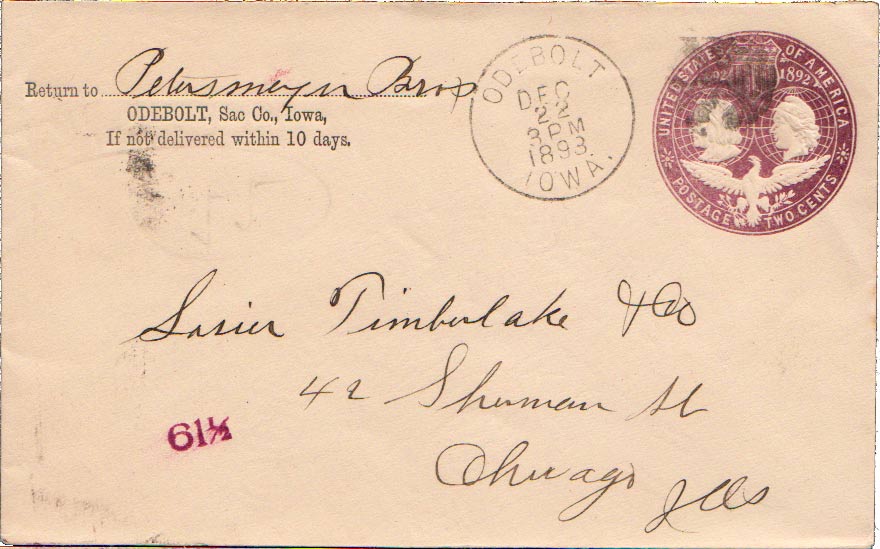 Return to Petersmeyer Bros
ODEBOLT, Sac Co., Iowa,
If not delivered within 10 days.
ODEBOLT
DEC
22
3 PM
1893
IOWA.
UNITED STATES OF AMERICA
1892
POSTAGE TWO CENTS
Timberlake & Co
42 Sherman St
Chicago
Ills
61½